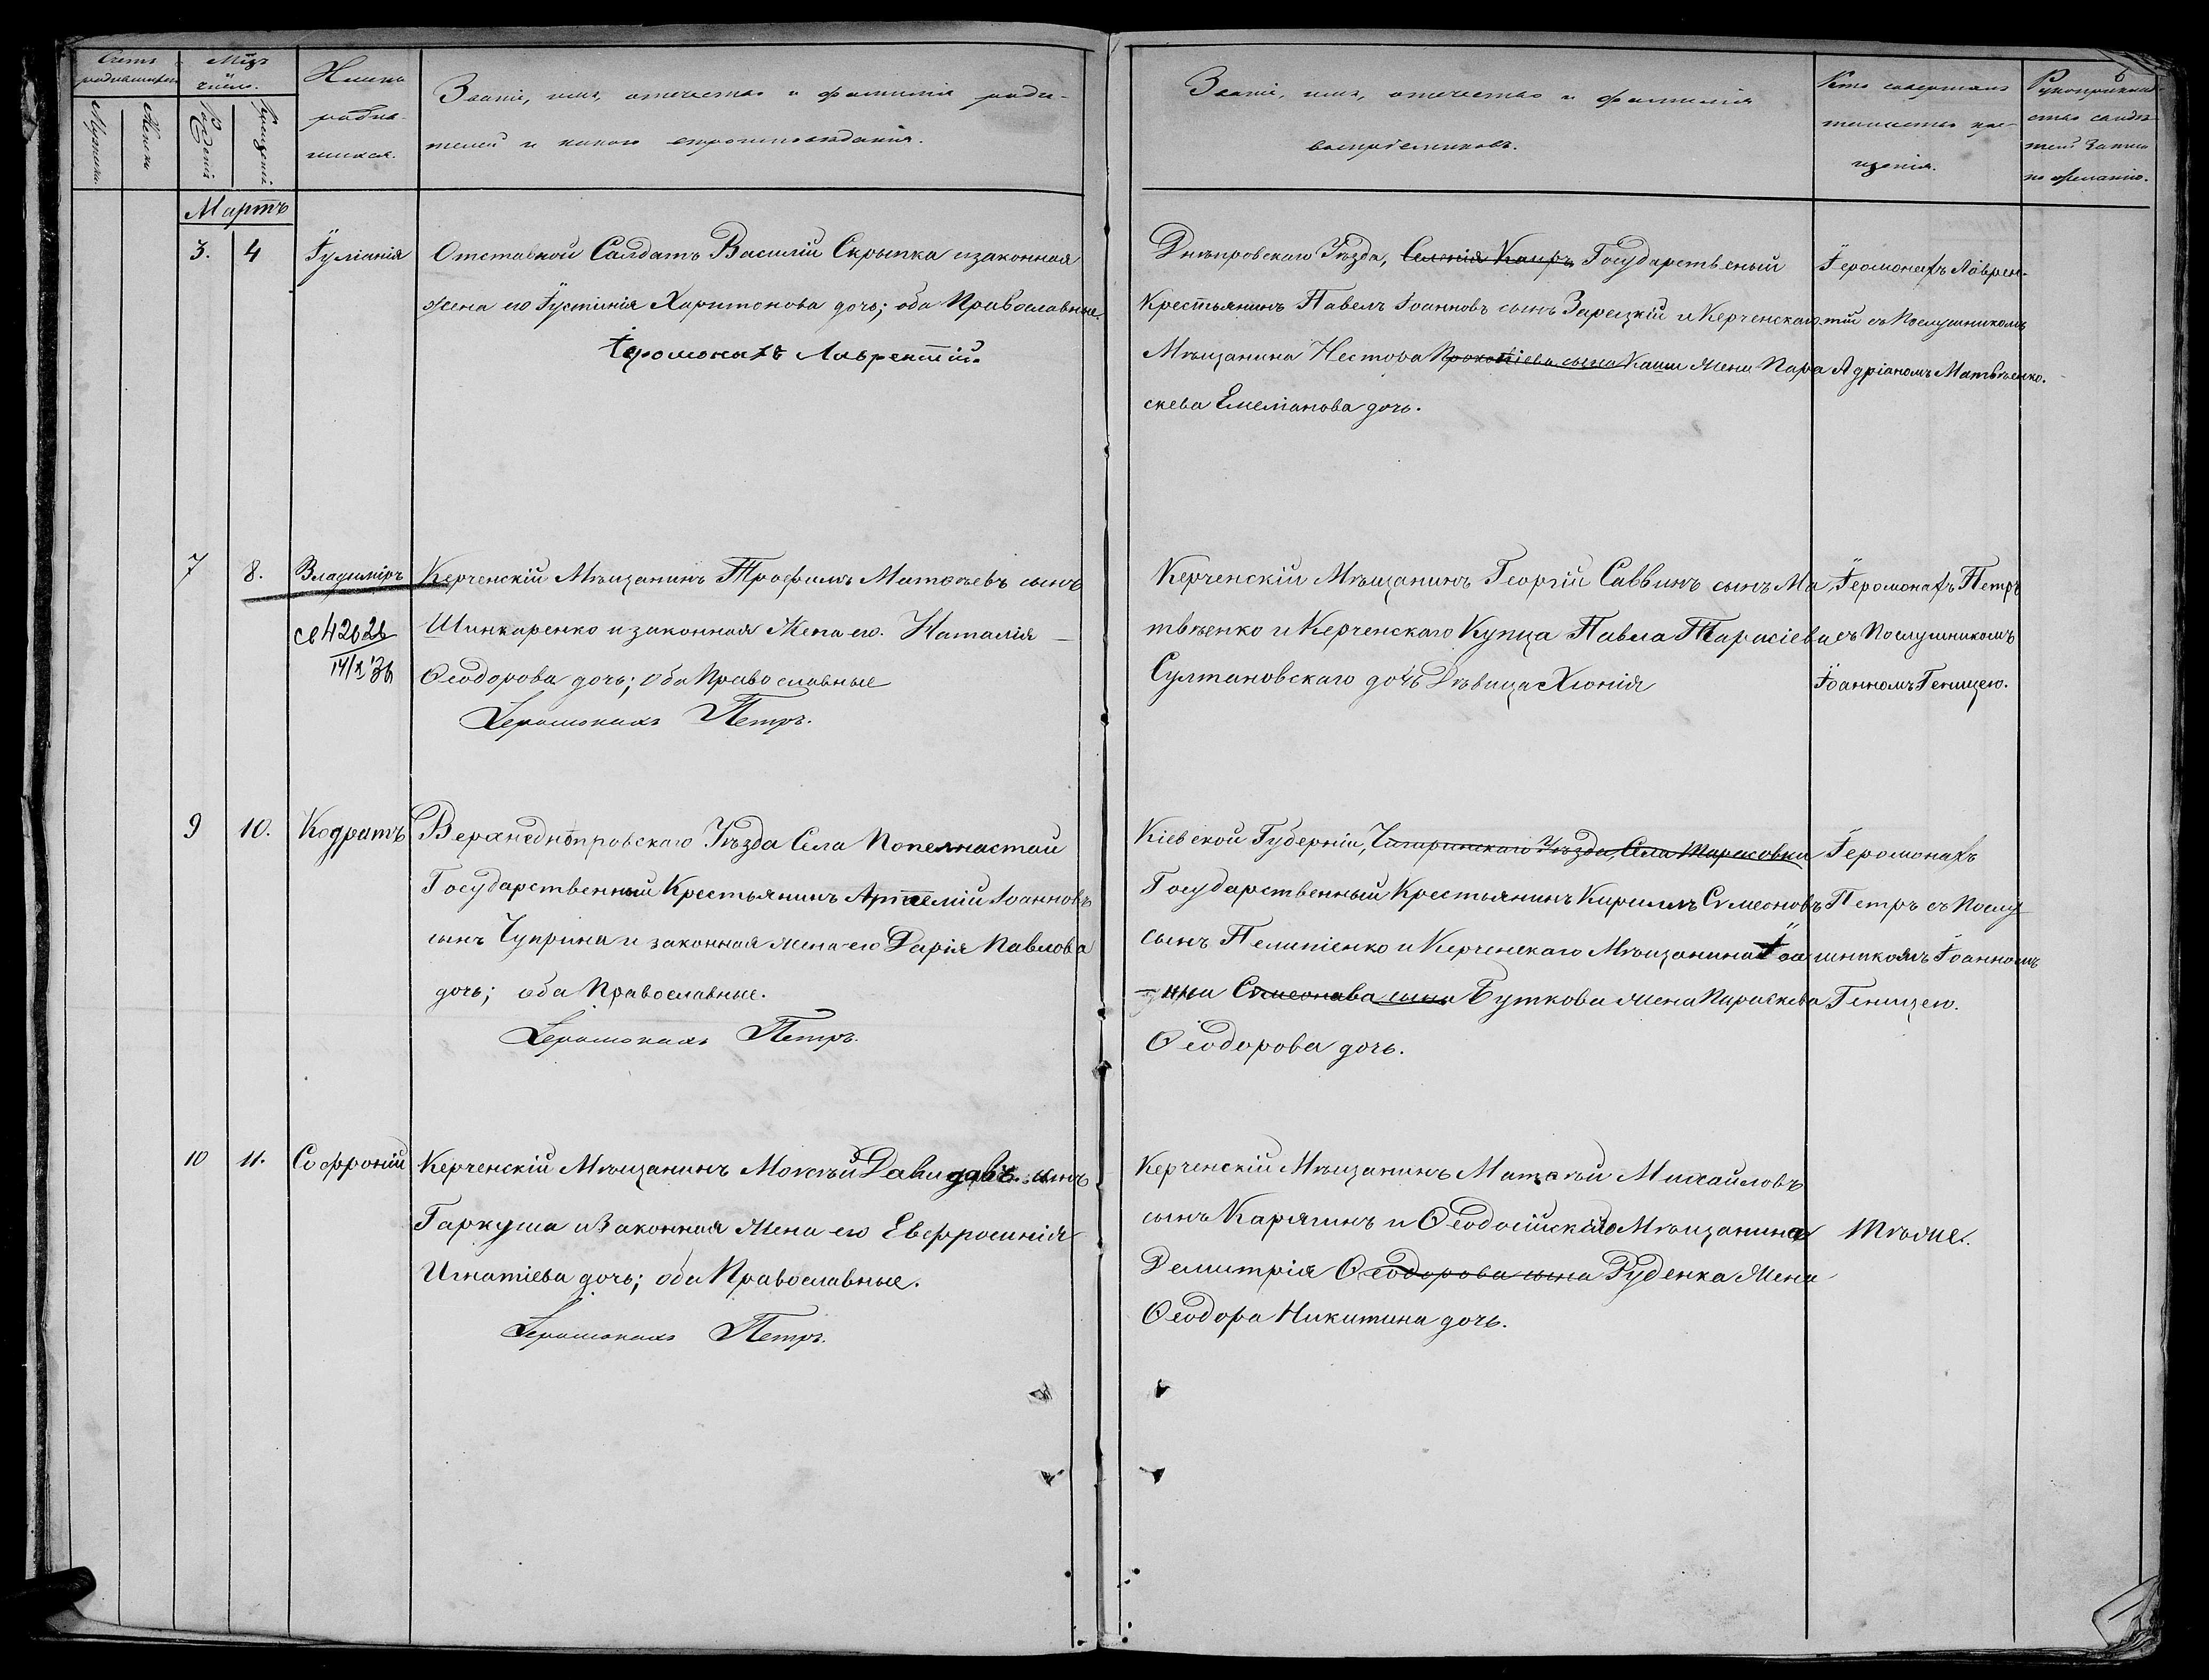 Счетъ родившихся
Мѣсяцъ и число.
Мужеска
Женска
Рожденія
Крещенія
Имена
родив-
шихся.
Званіе, имя, отчество и фамилія роди-
телей и какого вѣроисповѣданія.
Званіе, имя, отчество и фамилія
воспріемниковъ.
Кто совершалъ
таинство кре-
щенія.
6
Рукоприклад-
ство свидѣ-
телей записи
по желанію.
Мартъ
3. 4
Іуліанія
Отставной Салдатъ Василій Скрыпка и законная
жена его Іустинія Харитонова дочь; оба Православные.
Іеромонахъ Лаврентій.
Днѣпровскаго Уѣзда, Селенія Каиръ Государственый
Крестьянинъ Павелъ Іоанновъ сынъ Зарецкій и Керченскаго
Мѣщанина Нестора Прокопіева сына Каши Жена Пара
скева Емеліанова дочь.
Іеромонахъ Лаврен-
тій съ Послушникомъ
Адріаномъ Матвѣенко.
7 8.
Владиміръ
св 42626
14/X 36
Керченскій Мѣщанинъ Трофимъ Матѳѣевъ сынъ
Шинкаренко и законная Жена его Наталія
Ѳеодорова дочь; Оба Православные
Іеромонахъ Петръ.
Керченскій Мѣщанинъ Георгій Саввинъ сынъ Ма
твѣенко и Керченскаго Купца Павла Тарасіева
Султановскаго дочь Дѣвица Хіонія
Іеромонахъ Петръ
съ Послушникомъ
Іоанномъ Геницею.
9 10.
Кодратъ
Верхнеднѣпровскаго Уѣзда Села Попелнастой
Государственный Крестьянинъ Артемій Іоанновъ
сынъ Чуприна и законная жена его Дарія Павлова
дочь; оба Православные.
Іеромонахъ Петръ.
Кіевской Губерніи, Чигиринскаго Уѣзда, Села Тарасовки
Государственный Крестьянинъ Кириллъ Сѵмеоновъ
сынъ Пелипенко и Керченскаго Мѣщанина Іоа
нна Сѵмеонова сына Буткова жена Параскева
Ѳеодорова дочь.
Іеромонахъ
Петръ съ Послу
шникомъ Іоанномъ
Геницею.
10 11.
Софроній
Керченскій Мѣщанинъ Мокѣй Давидовъ сынъ
Гаркуша и Законная Жена его Евфросинія
Игнатіева дочь; оба Православные.
Іеромонахъ Петръ.
Керченскій Мѣщанинъ Матѳѣй Михайловъ
сынъ Карягинъ и Ѳеодосійскаго Мѣщанина
Демитрія Ѳеодорова сына Руденка Жена
Ѳеодора Никитина дочь.
Тѣже.